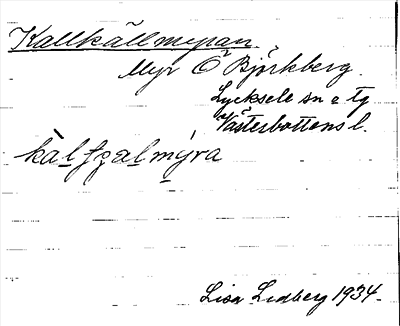 Kallkällmyran.
Myr Ö Björkberg.
Lycksele sn o tg
Västerbottens l.
Lisa Lidberg 1934.